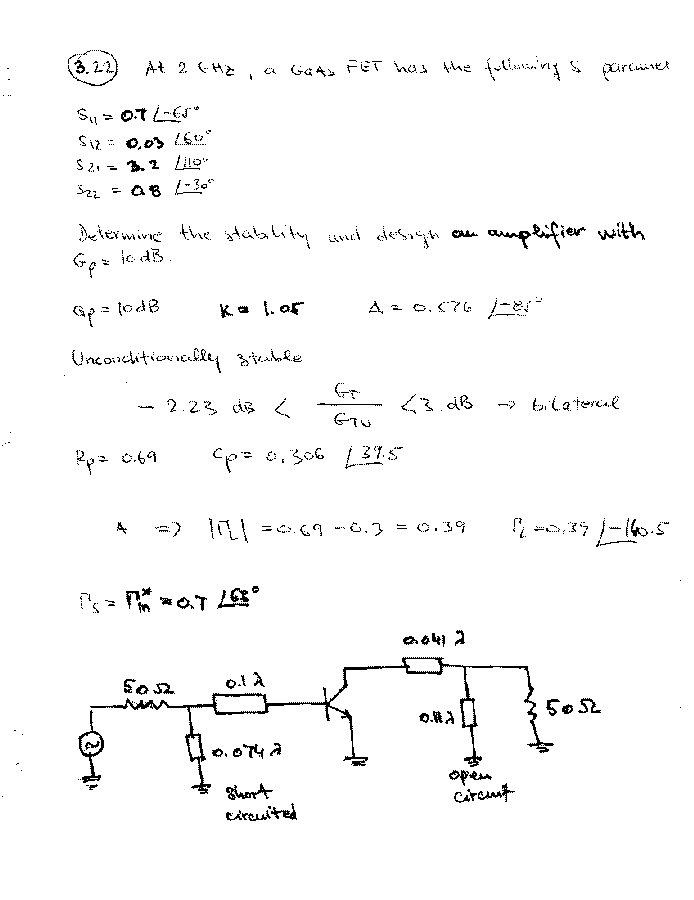 3.22 At 2 GHz, a GaAs FET has the following S paramet
S11 = 0.7 ∠-65°
S12 = 0.03 ∠60°
S21 = 3.2 ∠110°
S22 = 0.8 ∠-30°
Determine the stability and design an amplifier with
Gp = 10 dB.
Gp = 10 dB K = 1.05 Δ = 0.576 ∠-85°
Unconditionally stable
- 2.23 dB < GT / GTU < 3 dB → bilateral
Rp = 0.69 Cp = 0.306 ∠39.5
A => |ΓL| = 0.69 - 0.3 = 0.39 ΓL = 0.39 ∠-160.5
Γs = Γin* = 0.7 ∠68°
0.041 λ
50Ω 0.1 λ
0.11 λ 50Ω
0.074 λ
open
circuit
short
circuited